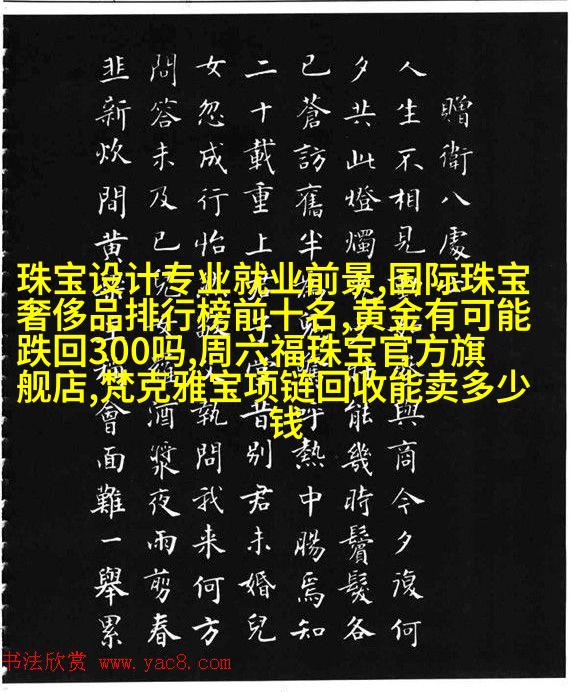 珠宝设计专业就业前景,国际珠宝
奢侈品排行榜前十名,黄金有可能
跌回300吗,周六福珠宝官方旗
舰店,梵克雅宝项链回收能卖多少
钱
贈衛八處
人生不相見與商今夕復何
夕共此燈燭能幾時鬢髮各
已蒼訪舊半呼熱中腸焉知
二十載重上昔別君未婚兒
女忽成行怡執問我来何方
問答未及已酒漿夜雨剪春
韭新炊間黄會面難一舉累
书法欣赏 www.yac8.com